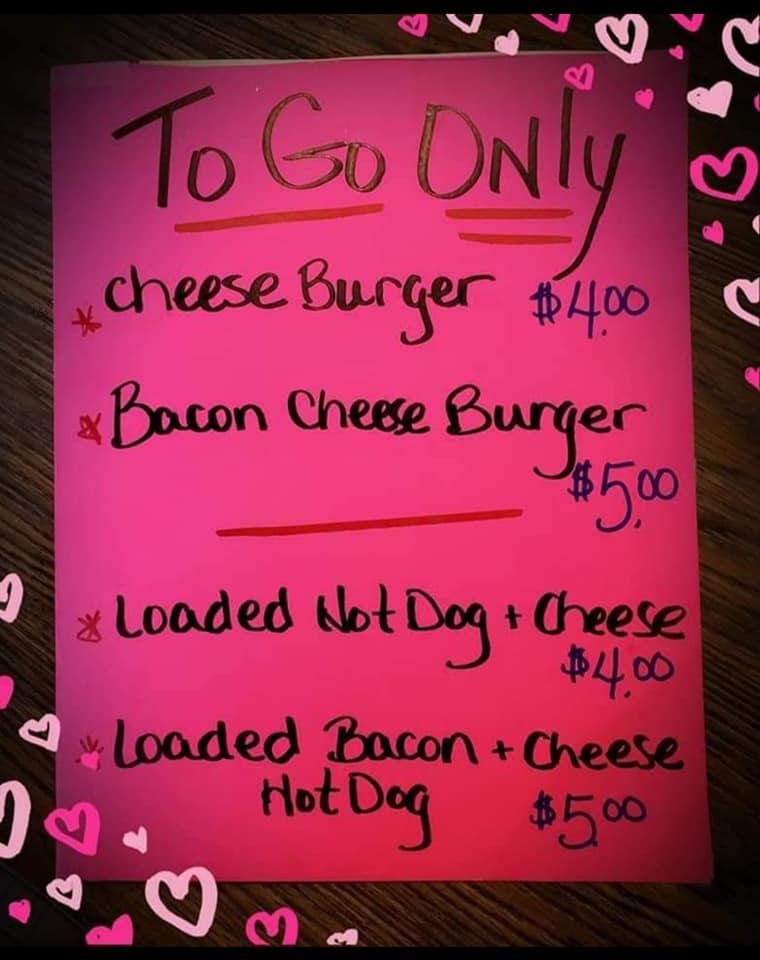 To Go Only
* cheese Burger $4.00
* Bacon Cheese Burger
$5.00
* Loaded Hot Dog + Cheese
$4.00
* Loaded Bacon + Cheese
Hot Dog $5.00